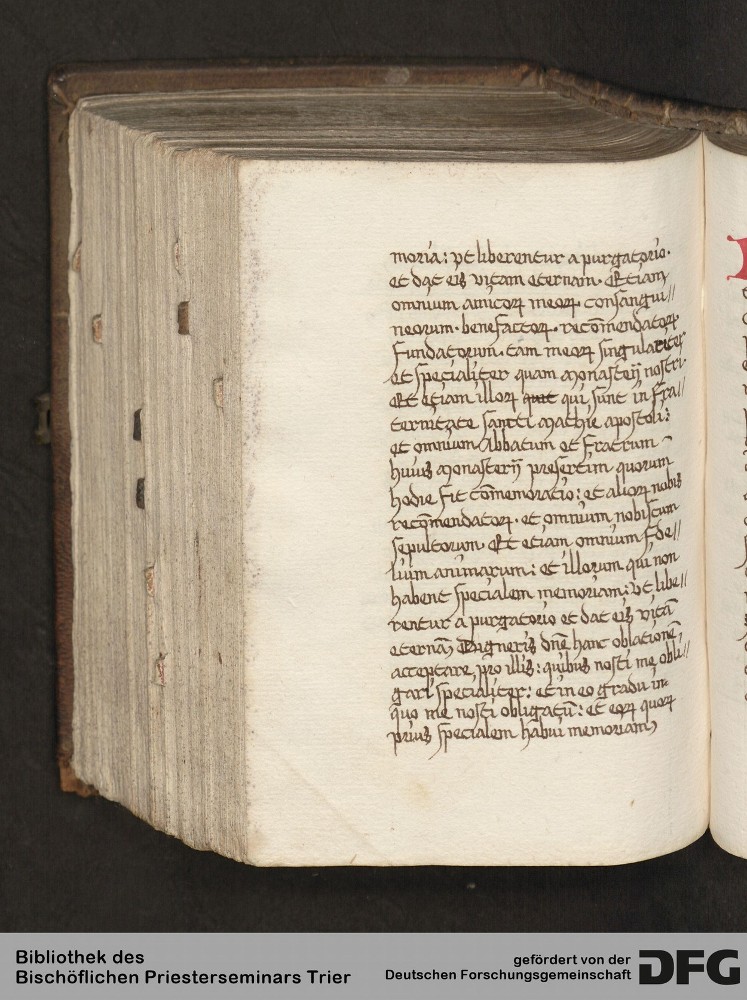 moria: vt liberentur a purgatorio.
et dꝫt eis vitam eternam. Et etiam
omnium amicoꝝ meoꝝ. consangui//
neorum. benefactoꝝ. recōmendatoꝝ
fundatorum. tam meoꝝ singulariter
et specialiter quam monasterij nostri.
Et etiam illoꝝ quit qui sunt in fra//
ternitate sancti mathie apostoli:
et omnium Abbatum et fratrum
huius monasterij presertim quorum
hodie fit cōmemoratio: et alioꝝ nobis
recōmendatoꝝ. et omnium nobiscum
sepultorum. Et etiam omnium fide//
lium animarum: et illorum qui non
habent specialem memoriam: vt libe//
rentur a purgatorio et det eis vitā
eternā, Digneris dn̄e hanc oblationē,
acceptare, pro illis: quibus nosti me obli//
gari specialiter: et in eo gradu in
quo me nosti obligatū: et eoꝝ quoꝝ
prius specialem habui memoriam,
Bibliothek des
Bischöflichen Priesterseminars Trier
gefördert von der
Deutschen Forschungsgemeinschaft
DFG